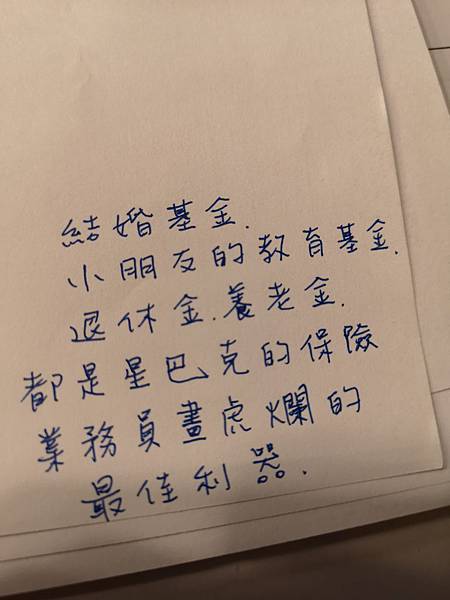 結婚基金.
小朋友的教育基金.
退休金.養老金.
都是星巴克的保險
業務員畫虎爛的
最佳利器.